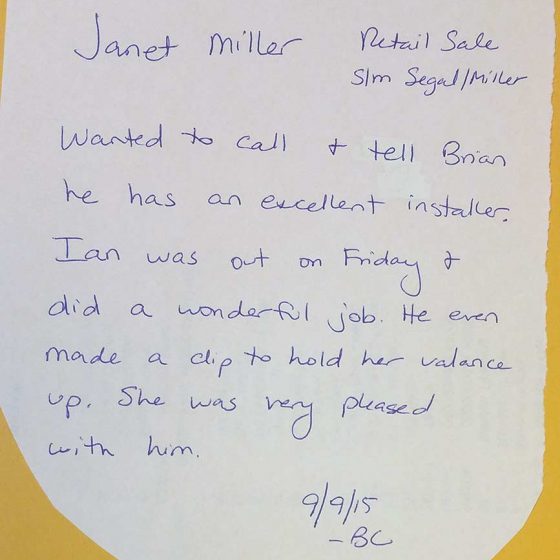 Janet Miller
Retail Sale
Slm Segal/Miller
Wanted to call & tell Brian
he has an excellent installer.
Ian was out on Friday &
did a wonderful job. He even
made a clip to hold her valance
up. She was very pleased
with him.
9/9/15
-BC